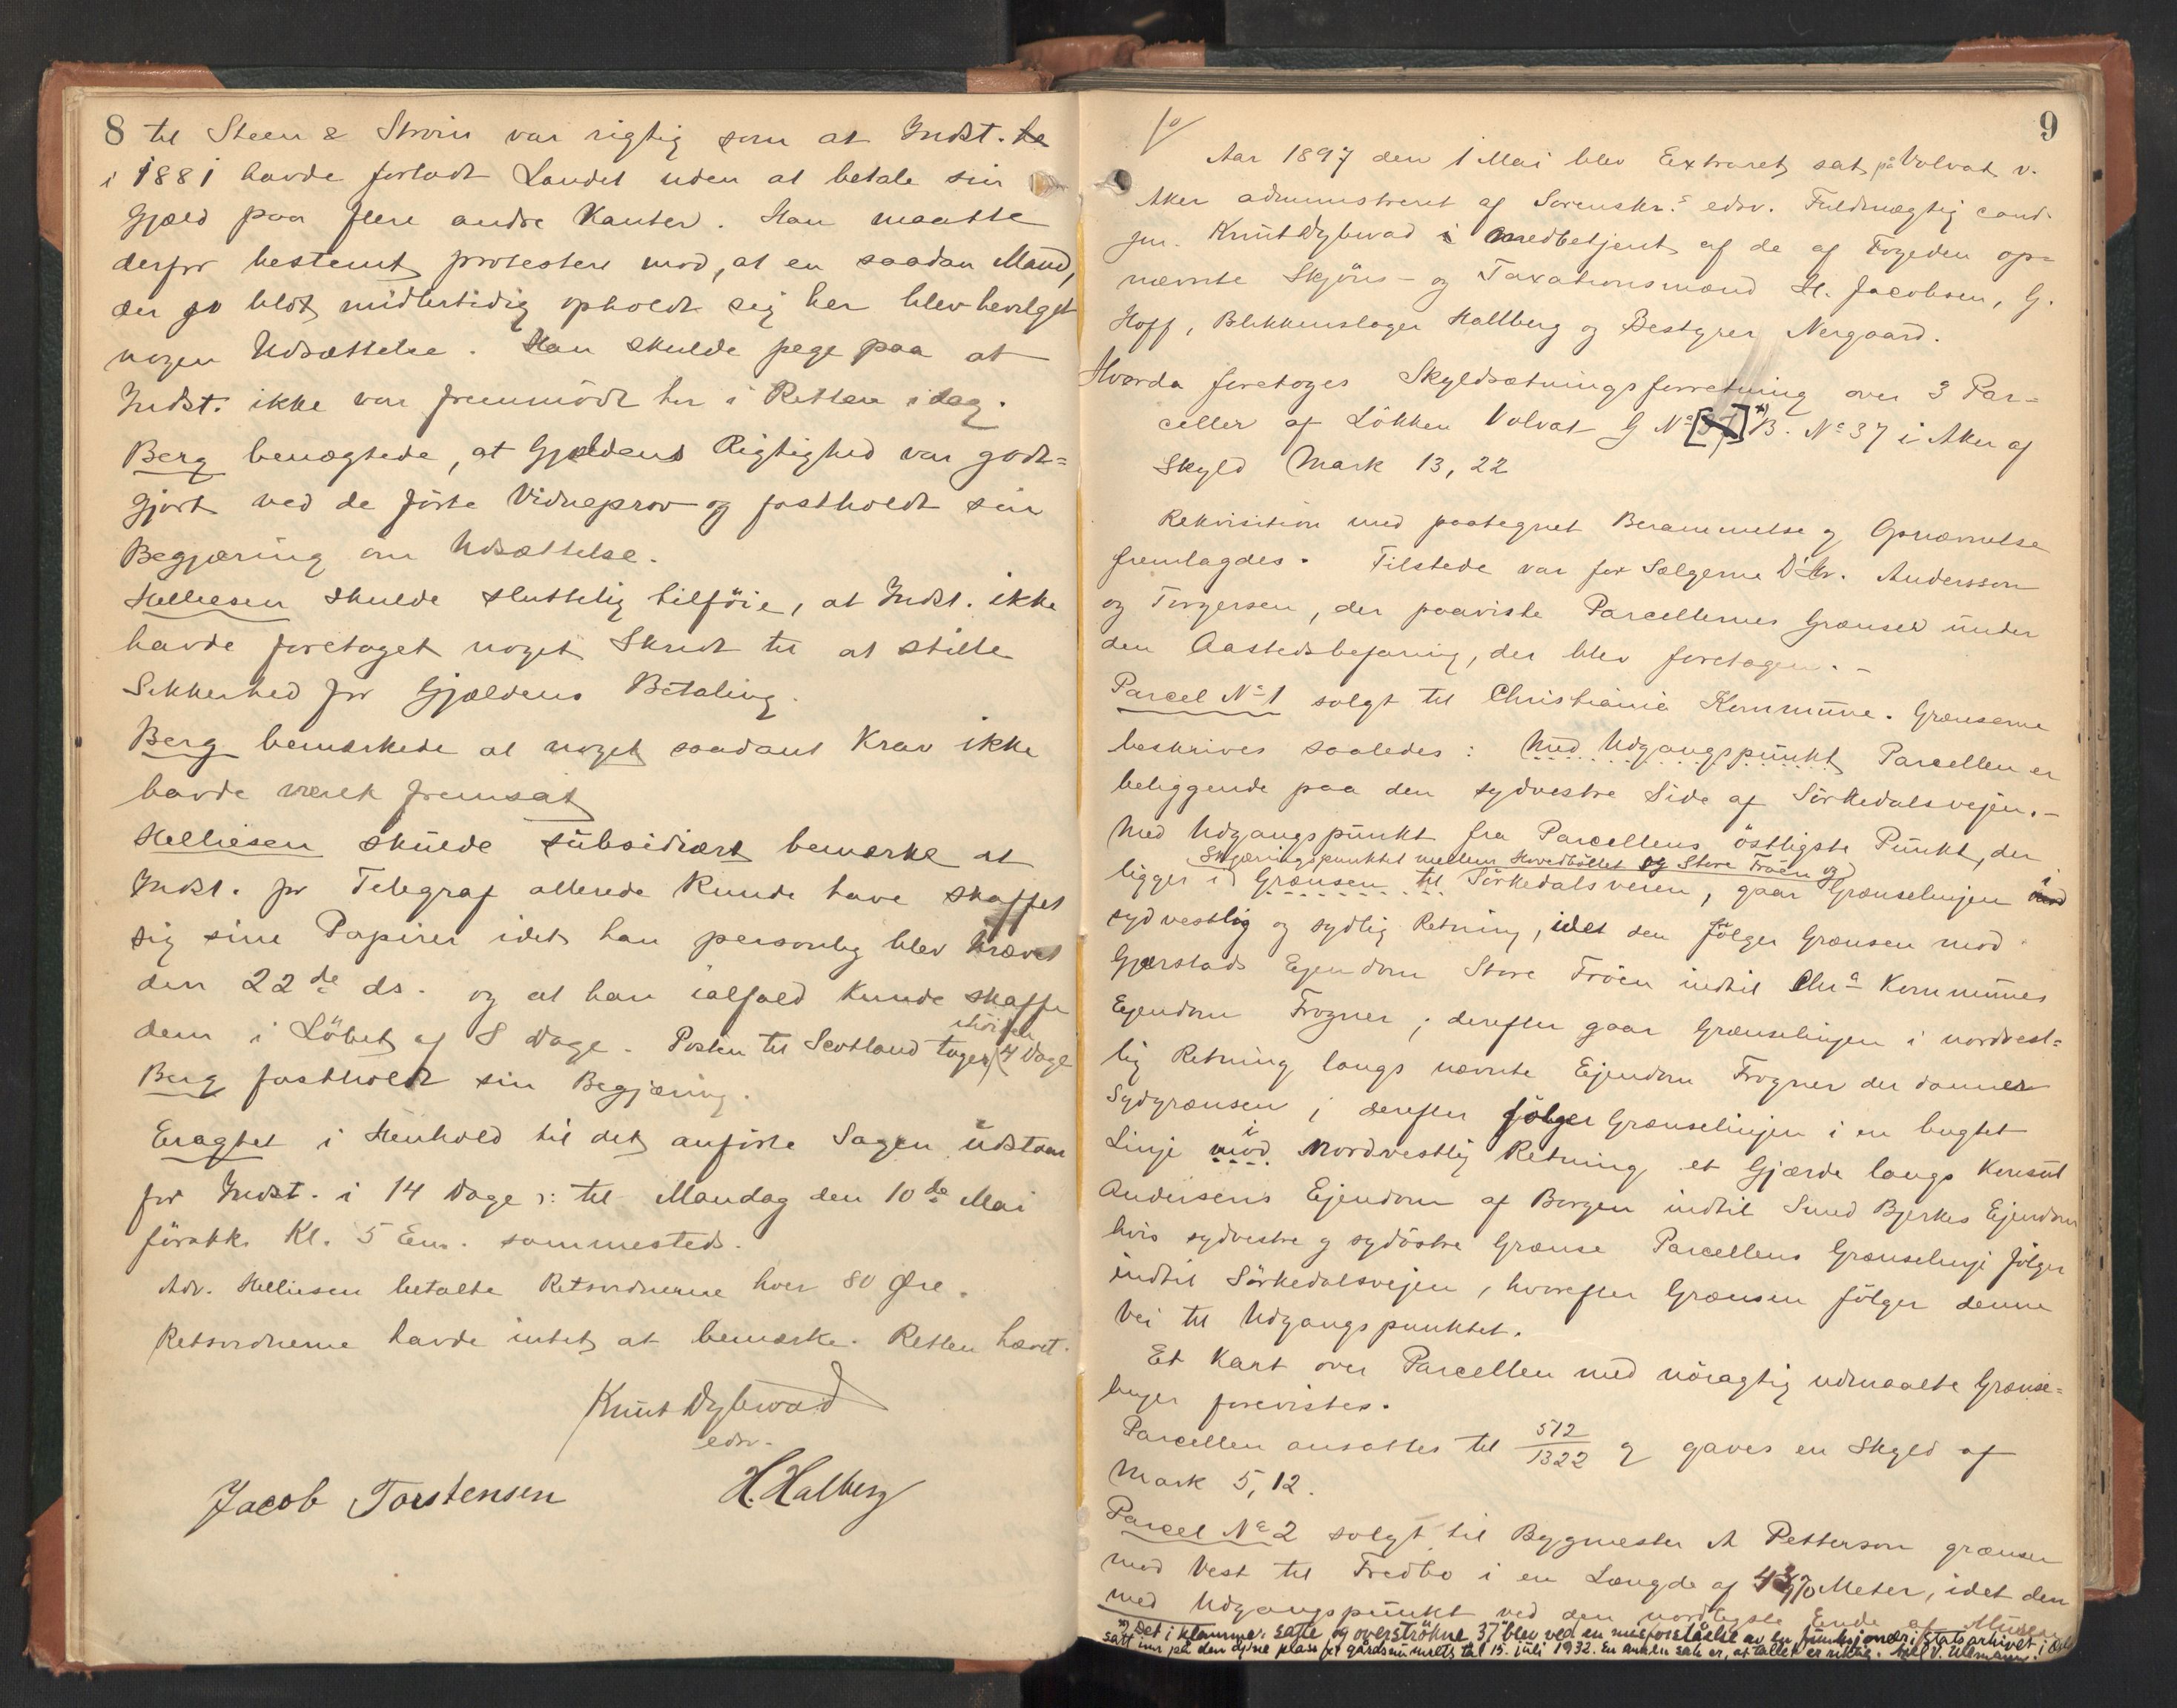 8 til Steen & Strøm var rigtig som at Indst.
i 1881 havde forladt Landet uden at betale sin
Gjæld paa flere andre Kanter. Han maatte
derfor bestemt protestere mod, at en saadan Mand,
der jo blot midlertidig opholdt sig her blev bevilget
nogen Udsættelse. Han skulde pege paa at
Indst. ikke var fremmødt her i Retten idag.
Berg benægtede, at Gjældens Rigtighed var godt=
gjort ved de førte Vidneprov og fastholdt sin
Begjæring om Udsættelse.
Helliesen skulde sluttelig tilføie, at Indst. ikke
havde foretaget noget Skridt til at stille
Sikkerhed for Gjældens Betaling.
Berg bemærkede at noget saadant Krav ikke
havde været fremsat
Helliesen skulde subsidiært bemærke at
Indst. pr Telegraf allerede kunde have skaffet
sig sine Papirer idet han personlig blev krævet
den 22de ds. og at han ialfald kunde skaffe
dem i Løbet af 8 Dage. Posten til Scotland tager høiden 4 Dage
Berg fastholdt sin Begjæring.
Eragtet i Henhold til det anførte Sagen udstaar
for Indst. i 14 Dage ɔ: til Mandag den 10de Mai
førstk. Kl. 5 Em. sammesteds.
Adv. Helliesen betalte Retsvidnerne hver 80 Øre.
Retsvidnerne havde intet at bemærke. Retten hævet.
Knut Dybwad
edsv.
Jacob Torstensen H. Halberg
9
Aar 1897 den 1 Mai blev Extraret sat på Volvat v.
Aker administreret af Sorenskr.s edsv. Fuldmægtig cand.
jur. Knut Dybwad medbetjent af de af Fogeden op=
nævnte Skjöns- og Taxationsmænd H. Jacobsen, G.
Hoff, Blikkenslager Hallberg og Bestyrer Nergaard.
Hvorda foretoges Skyldsætningsforretning over 3 Par=
celler af Løkken Volvat G No [37] *) B. No 37 i Aker af
Skyld Mark 13,22
Rekvisition med paategnet Berammelse og Opnævnelse
fremlagdes. Tilstede var for Sælgerne D'Hr. Andersson
og Torgersen, der paaviste Parcellernes Grænser under
den Aastedsbefaring, der blev foretagen. -
Parcel No 1 solgt til Christiania Kommune. Grænserne
beskrives saaledes: Med Udgangspunkt Parcellen er
beliggende paa den sydvestre Side af Sørkedalsvejen. -
Med Udgangspunkt fra Parcellens østligste Punkt, der
Skjæringspunktet mellem Hovedbøllet og Store Frøen og
ligger i Grænsen til Sørkedalsveien, gaar Grænselinjen i
sydvestlig og sydlig Retning, idet den følger Grænsen mod
Gjerstads Ejendom Store Frøen indtil Chra Kommunes
Ejendom Frogner; derefter gaar Grænselinjen i nordvest=
lig Retning langs nævnte Ejendom Frogner der danner
Sydgrænsen; derefter følger Grænselinjen i en bugtet
Linje mod i Nordvestlig Retning et Gjærde langs Konsul
Andersens Ejendom af Borgen indtil Smed Bjerkes Ejendom
hvis sydvestre og sydöstre Grænse Parcellens Grænselinje følger
indtil Sørkedalsvejen, hvorefter Grænsen følger denne
Vei til Udgangspunktet.
Et Kart over Parcellen med nøiagtig udmaalte Grænse=
linjer forevistes.
Parcellen ansattes til 512/1322 og gaves en Skyld af
Mark 5,12.
Parcel No 2 solgt til Bygmester A Petterson grænser
mod Vest til Fredbo i en Længde af Meter, idet den
med Udgangspunkt ved den nordligste Ende af Muren
*) Det i klamme satte og overstrøkne 37 blev ved en misforståelse av en funksjonær i statsarkivet i Oslo
satt inn på den åpne plass for gårdsnummeret 15. juli 1932. En annen sak er, at tallet er riktig.